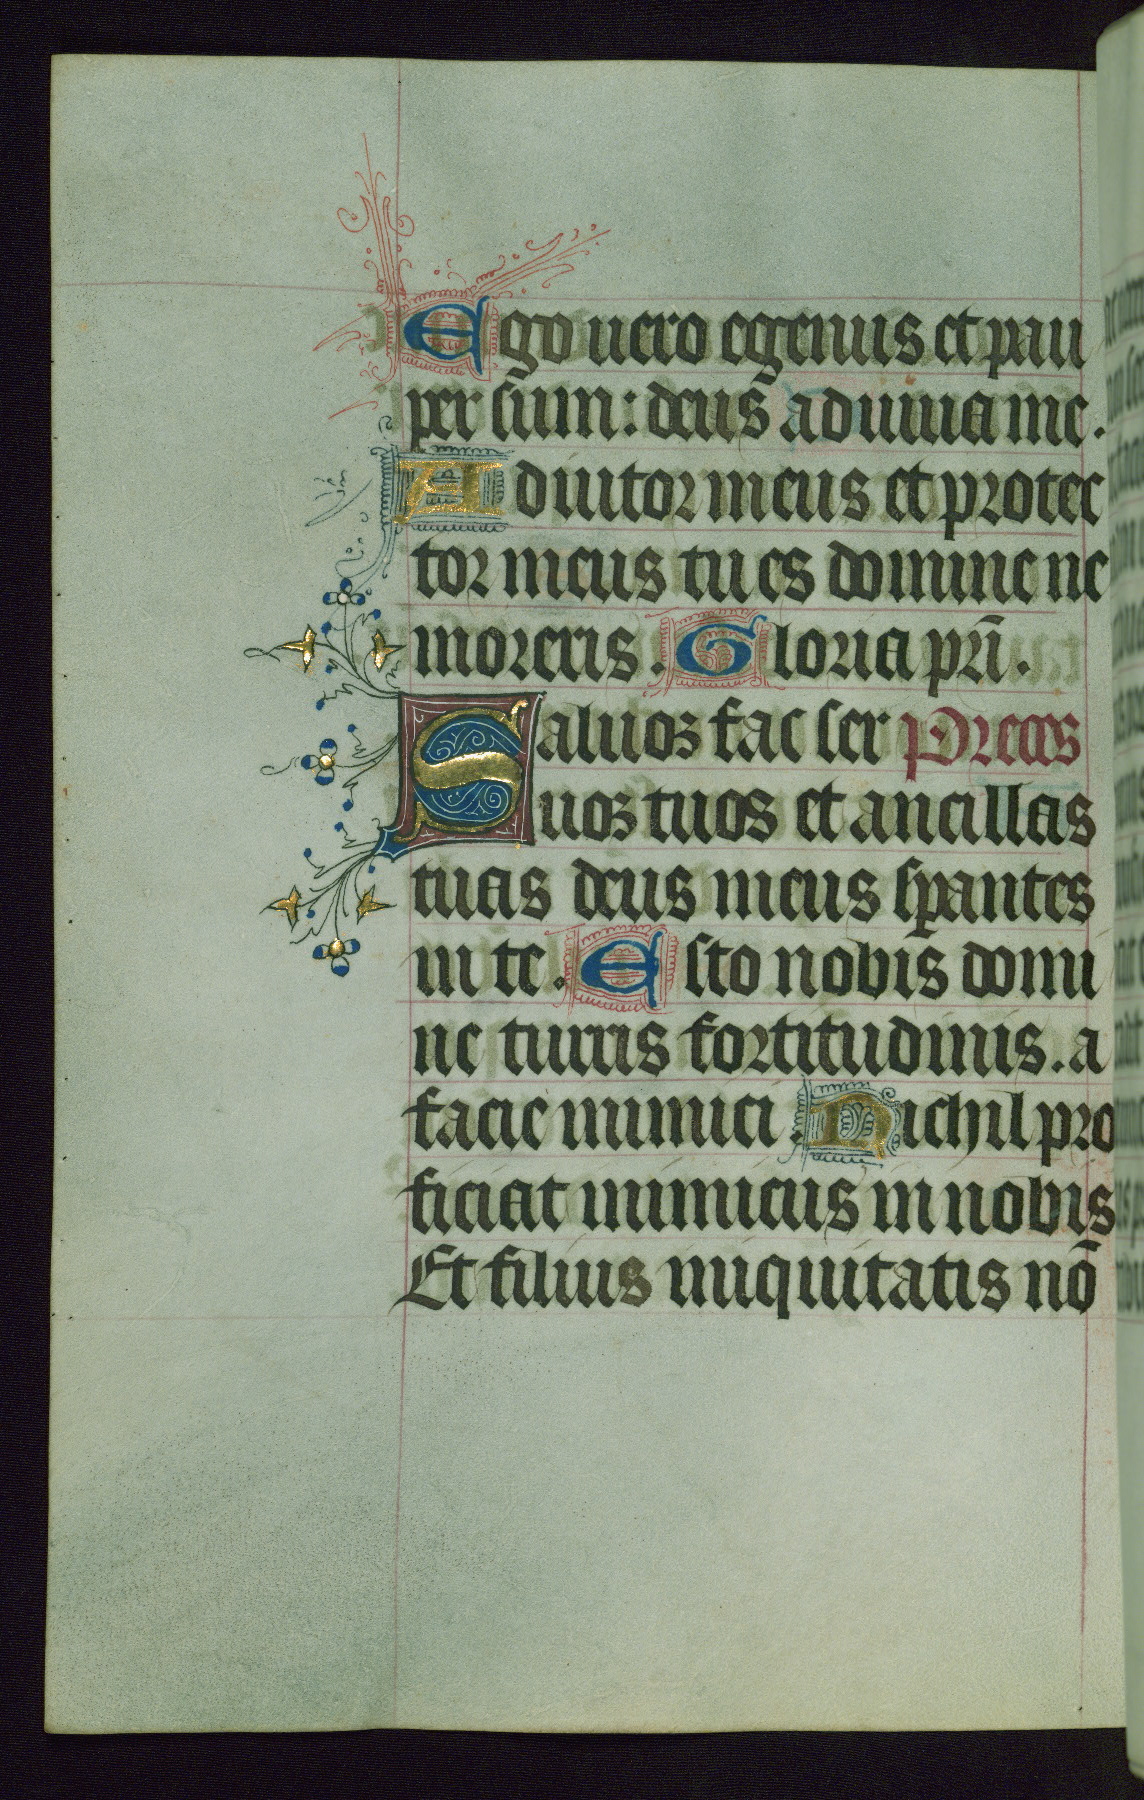 Ego uero egenus et pau
per sum: deus adiuua me.
Adiutor meus et protec
tor meus tu es domine ne
moreris. Gloria pr̄i.
Saluos fac ser Preces
uos tuos et ancillas
tuas deus meus sꝑantes
in te. Esto nobis domi
ne turris fortitudinis. a
facie inimici. Nichil pro
ficiat inimicus in nobis
Et filius iniquitatis nō